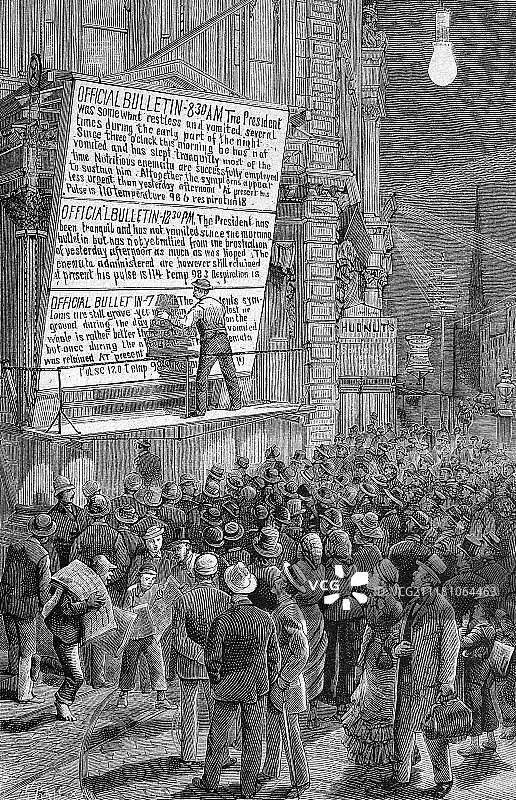 OFFICIAL BULLETIN-8.30 A.M. The President
was somewhat restless and vomited several
times during the early part of the night
Since three o'clock this morning he has not
vomited and has slept tranquilly most of the
time Nutritious enemata are successfully employed
to sustain him. Altogether the symptoms appear
less urgent than yesterday afternoon. At present his
Pulse is 110 temperature 98 6 respiration 18
OFFICIAL BULLETIN-12.30 P.M. The President has
been tranquil and has not vomited since the morning
bulletin but has not yet rallied from the prostration
of yesterday afternoon as much as was hoped. The
enemata administered are however still retained
at present his pulse is 114 Temp 98 3 Respiration 18
OFFICIAL BULLETIN-7 The sym-
toms are still grave yet lost
ground during the day on the
whole is rather better vomited
but once during the
was retained At present
Pulse 120 Temp
HUDNUT'S
VCG
VCG.COM